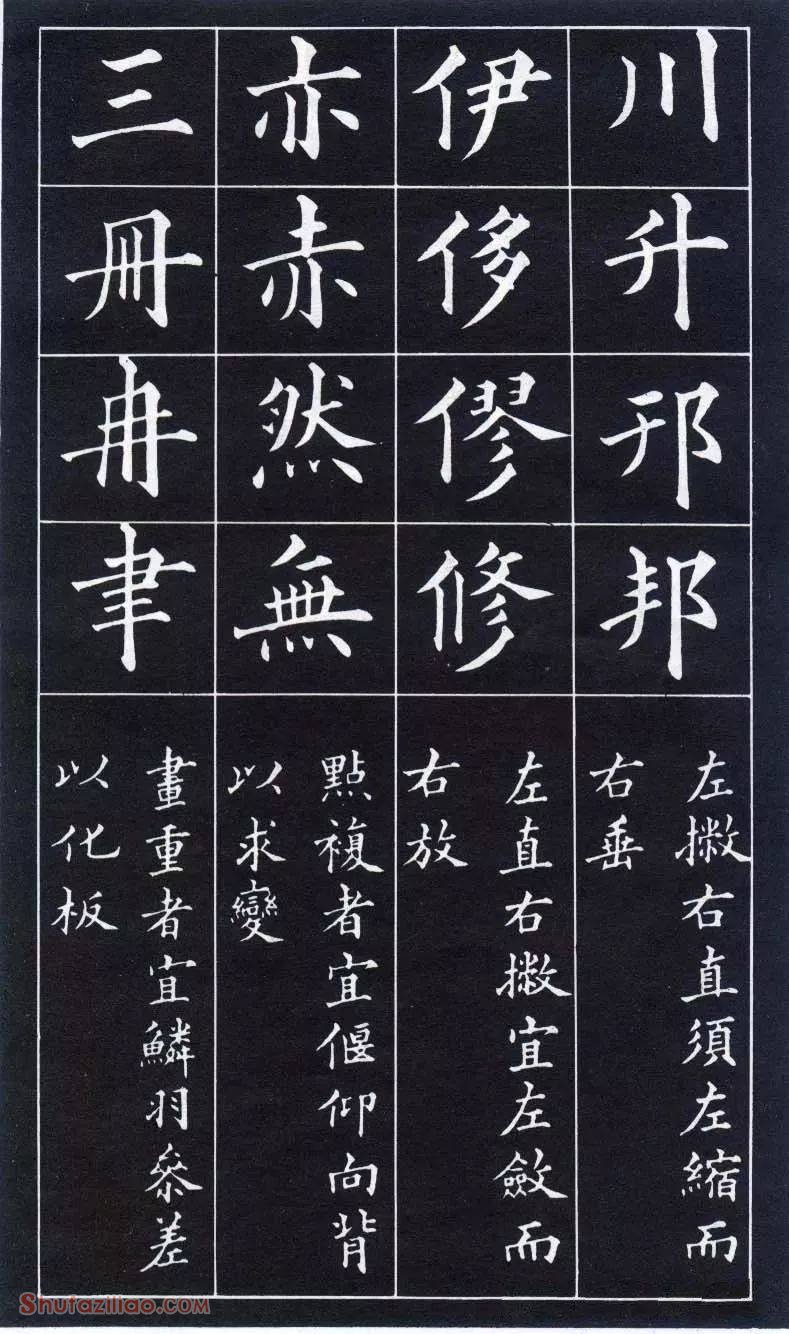 川升邗邦
左撇右直須左縮而
右垂
伊侈僇修
左直右撇宜左斂而
右放
亦赤然無
點複者宜偃仰向背
以求變
三冊冉聿
畫重者宜鱗羽參差
以化板
Shufaziliao.com